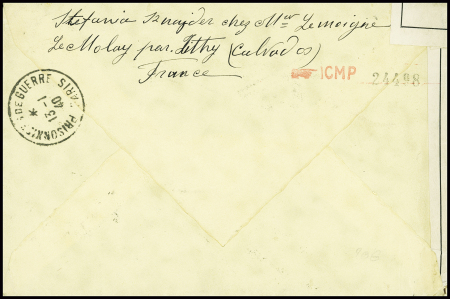 Stefania Sznajder chez Mr Lemoigne
Le Molay par. Lithy (Calvados)
France
ICMP 24498
PARIS PRISONNIERS DE GUERRE
13 - 1
40
*